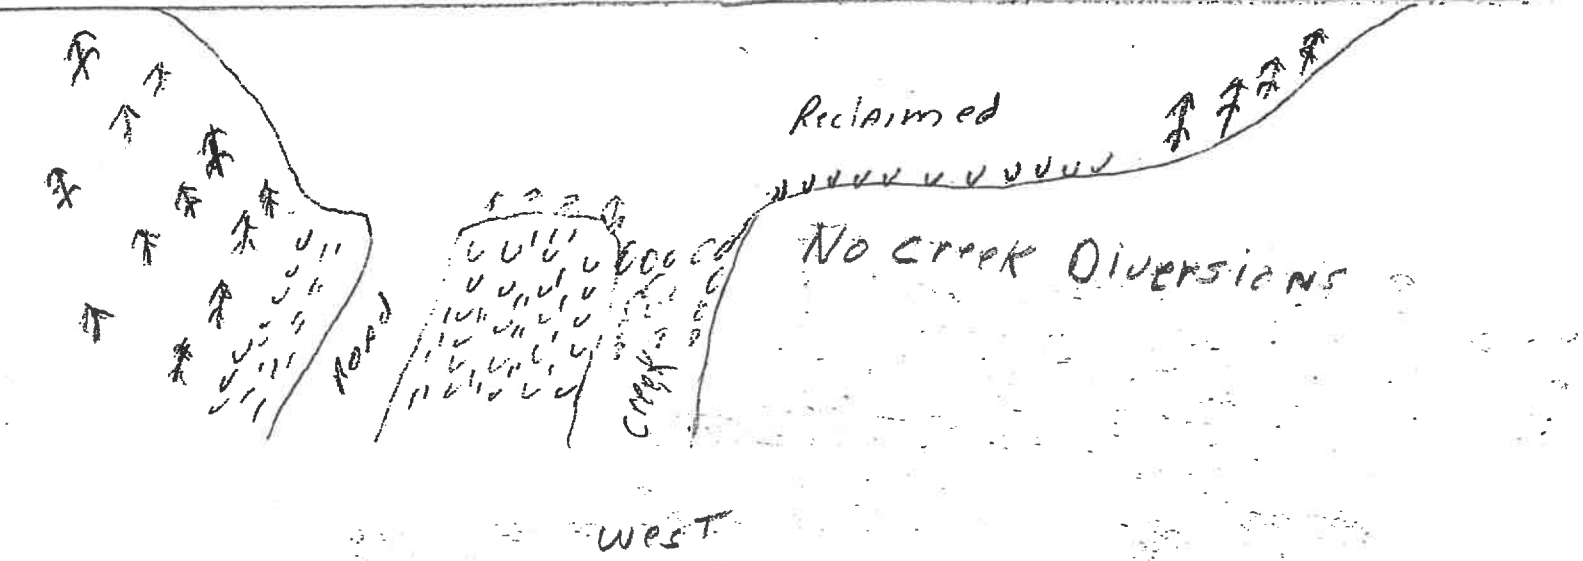 Reclaimed
No Creek Diversions
Creek
West